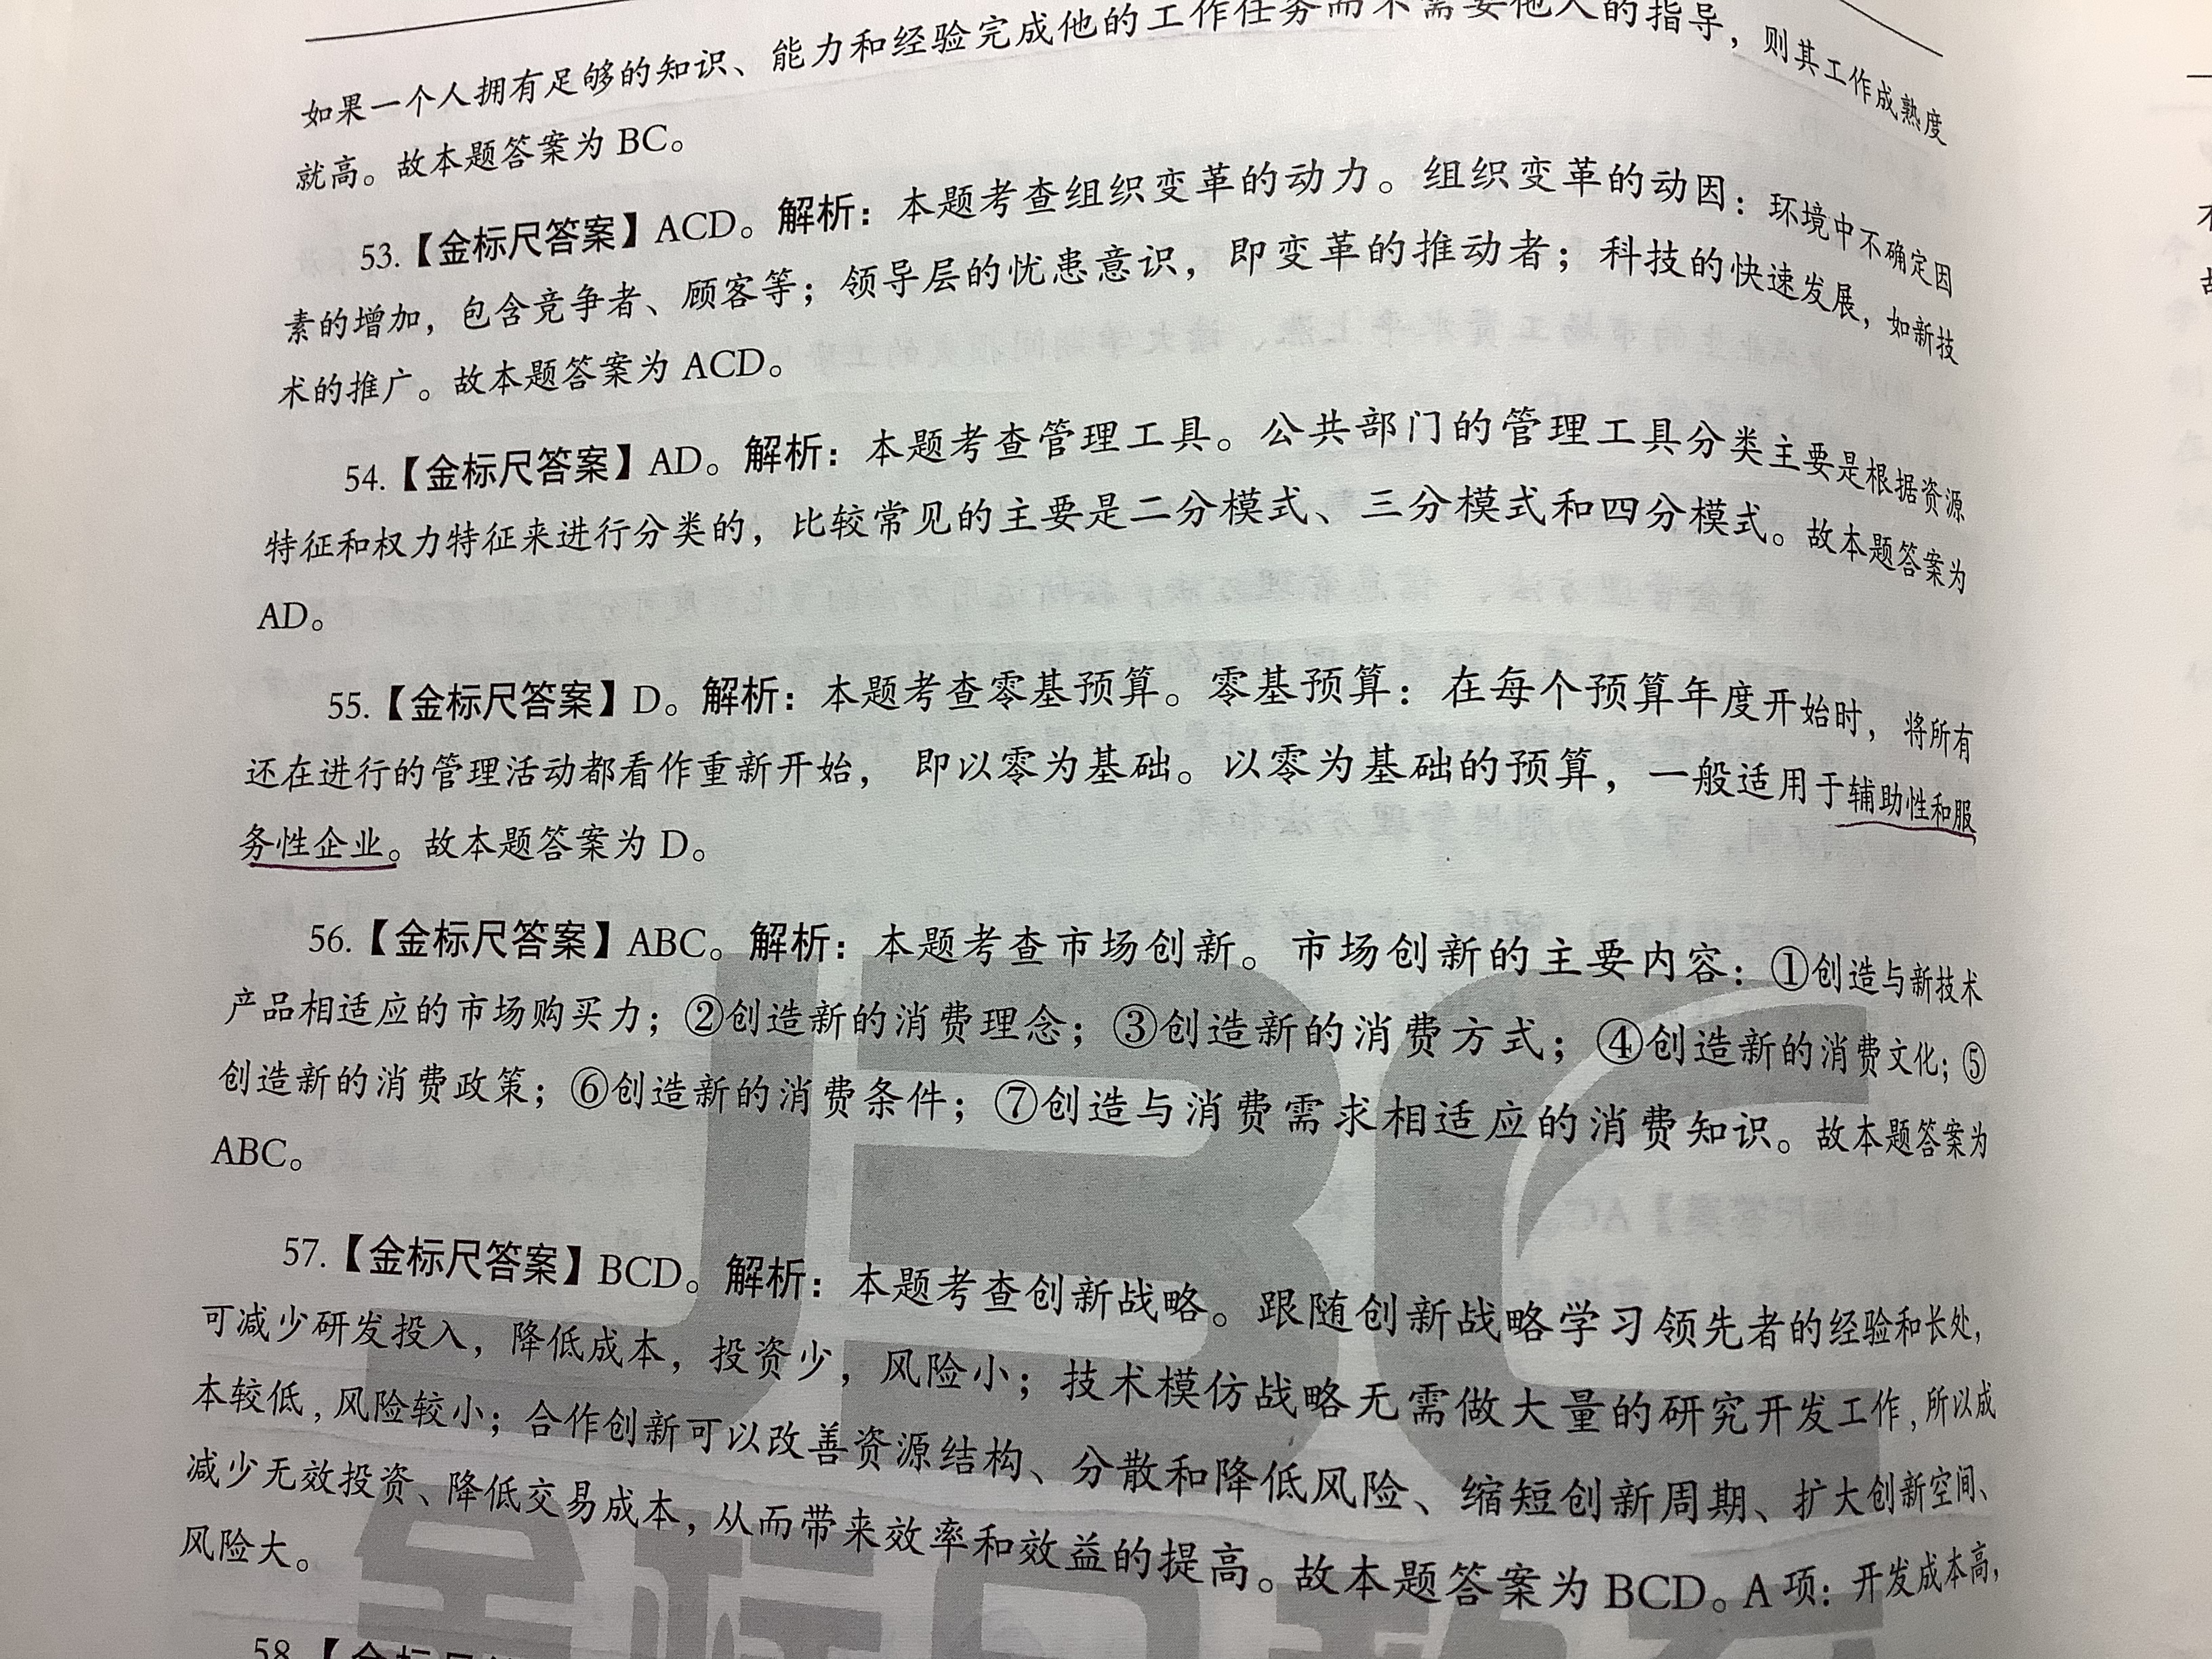 如果一个人拥有足够的知识、能力和经验完成他的工作任务而不需要他人的指导，则其工作成熟度
就高。故本题答案为 BC。
53.【金标尺答案】ACD。解析：本题考查组织变革的动力。组织变革的动因：环境中不确定因
素的增加，包含竞争者、顾客等；领导层的忧患意识，即变革的推动者；科技的快速发展，如新技
术的推广。故本题答案为 ACD。
54.【金标尺答案】AD。解析：本题考查管理工具。公共部门的管理工具分类主要是根据资源
特征和权力特征来进行分类的，比较常见的主要是二分模式、三分模式和四分模式。故本题答案为
AD。
55.【金标尺答案】D。解析：本题考查零基预算。零基预算：在每个预算年度开始时，将所有
还在进行的管理活动都看作重新开始，即以零为基础。以零为基础的预算，一般适用于辅助性和服
务性企业。故本题答案为 D。
56.【金标尺答案】ABC。解析：本题考查市场创新。市场创新的主要内容：①创造与新技术
产品相适应的市场购买力；②创造新的消费理念；③创造新的消费方式；④创造新的消费文化；⑤
创造新的消费政策；⑥创造新的消费条件；⑦创造与消费需求相适应的消费知识。故本题答案为
ABC。
57.【金标尺答案】BCD。解析：本题考查创新战略。跟随创新战略学习领先者的经验和长处，
可减少研发投入，降低成本，投资少，风险小；技术模仿战略无需做大量的研究开发工作，所以成
本较低，风险较小；合作创新可以改善资源结构、分散和降低风险、缩短创新周期、扩大创新空间、
减少无效投资、降低交易成本，从而带来效率和效益的提高。故本题答案为 BCD。A 项：开发成本高，
风险大。
58.【金标尺
JBC